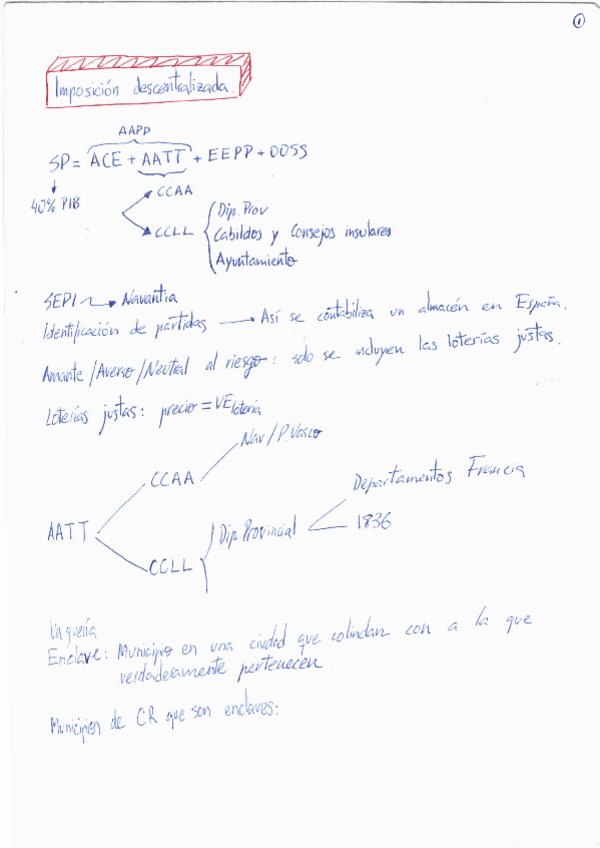 1
Imposición descentralizada.
AAPP
SP = ACE + AATT + EEPP + OOSS
40% PIB
CCAA
CCLL
Dip. Prov
Cabildos y Consejos insulares
Ayuntamiento
SEPI → Navantia
Identificación de partidas → Así se contabiliza un almacén en España.
Amante/Averso/Neutral al riesgo: solo se incluyen las loterías justas.
Loterías justas: precio = VE lotería
Nav/P. Vasco
CCAA
AATT
CCLL
Dip. Provincial
Departamentos Francia
1836
Enclave: Municipio en una ciudad que colindan con a la que
verdaderamente pertenecen.
Municipios de CR que son enclaves: